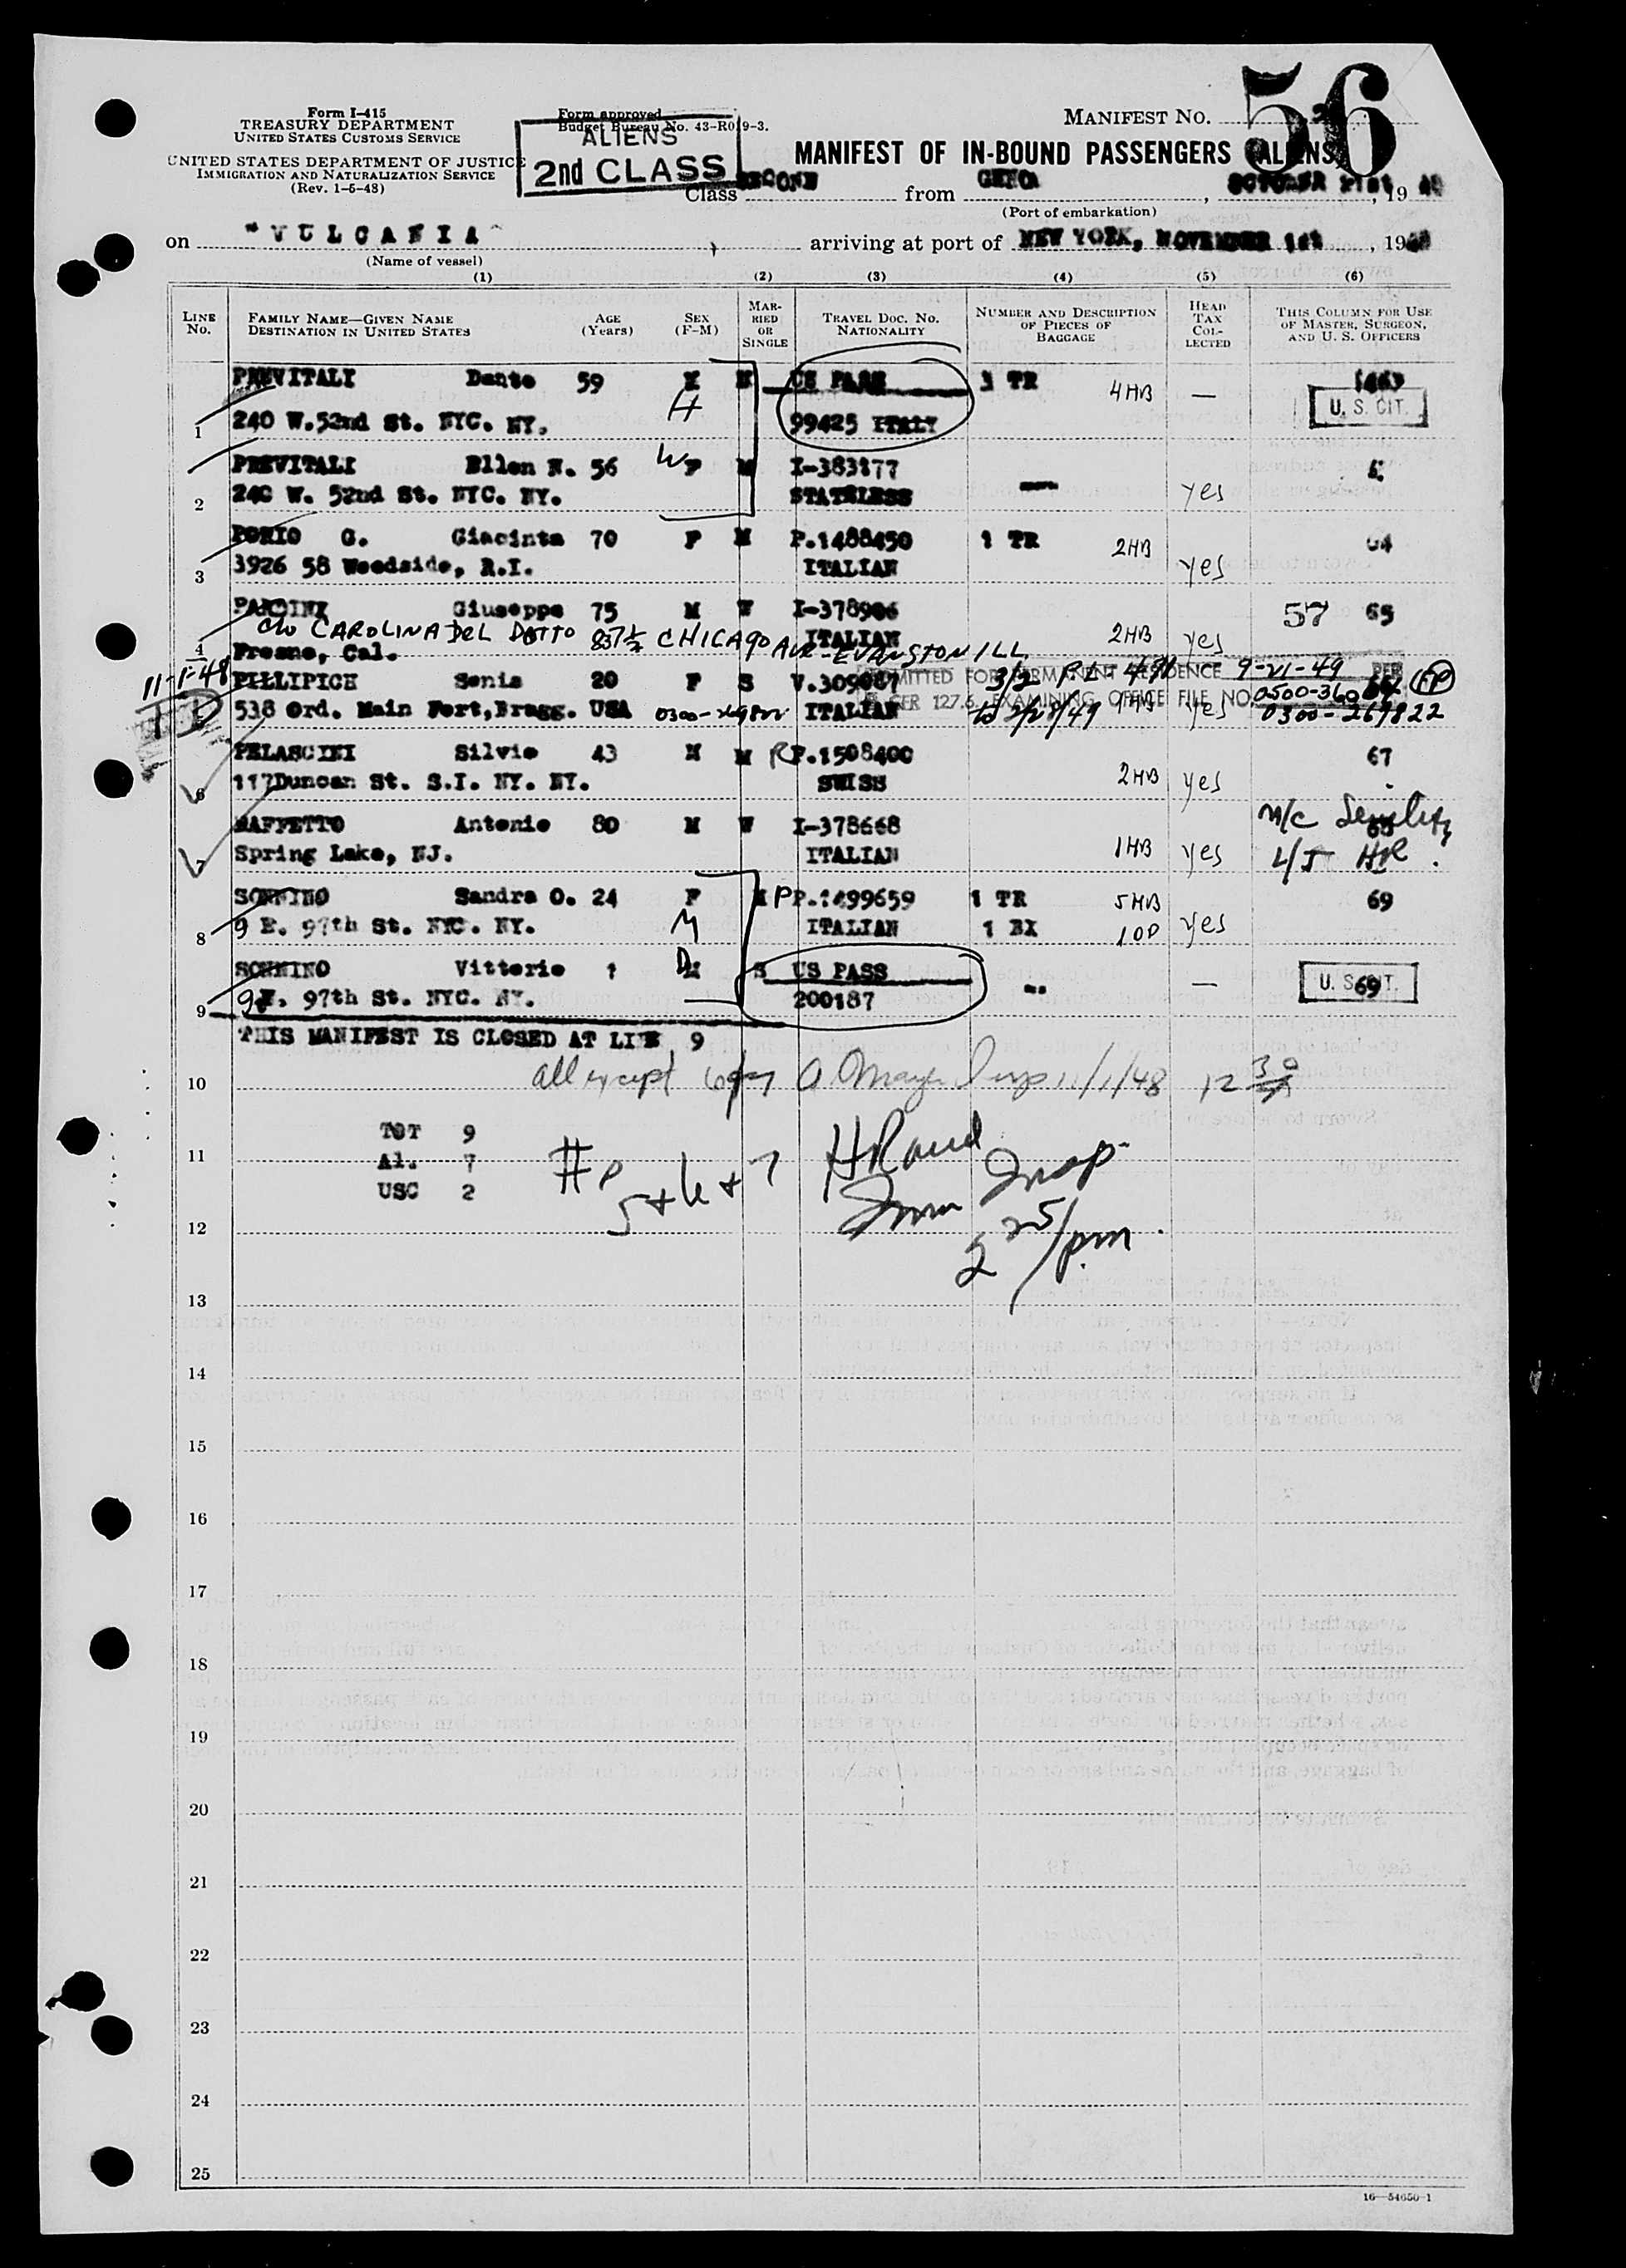 Form I-415
TREASURY DEPARTMENT
UNITED STATES CUSTOMS SERVICE
UNITED STATES DEPARTMENT OF JUSTICE
IMMIGRATION AND NATURALIZATION SERVICE
(Rev. 1-5-48)
Form approved
Budget Bureau No. 43-R019-3.
ALIENS
2nd CLASS
MANIFEST NO. 56
MANIFEST OF IN-BOUND PASSENGERS (ALIENS)
Class SECOND from GENOA, OCTOBER 21st, 1948
(Port of embarkation)
on "VULCANIA" arriving at port of NEW YORK, NOVEMBER 1st, 1948
(Name of vessel)
(1) (2) (3) (4) (5) (6)
LINE No. FAMILY NAME—GIVEN NAME DESTINATION IN UNITED STATES AGE (Years) SEX (F-M) MARRIED OR SINGLE TRAVEL DOC. NO. NATIONALITY NUMBER AND DESCRIPTION OF PIECES OF BAGGAGE HEAD TAX COLLECTED THIS COLUMN FOR USE OF MASTER, SURGEON, AND U. S. OFFICERS
PREVITALI Dante 59 M M US PASS 3 TR 4HB —
H U. S. CIT.
1 240 W.52nd St. NYC. NY. 99425 ITALY
PREVITALI Ellen N. 56 W F M I-383177 —
2 240 W. 52nd St. NYC. NY. STATELESS yes
PORIO G. Giacinta 70 F M P.1488450 1 TR 2HB 64
3 3926 58 Woodside, R.I. ITALIAN yes
Giuseppe 75 M W I-378906 57 65
c/o CAROLINA DEL DOTTO 837½ CHICAGO AVE - EVANSTON ILL
4 Fresno, Cal. ITALIAN 2HB yes
11-1-48 ADMITTED FOR PERMANENT RESIDENCE 9-21-49 PER
PILLIPICH Sonia 20 F S V.309087 FP
8 CFR 127.6. EXAMINING OFFICE FILE NO.
538 Ord. Main Fort,Bragg. USA ITALIAN yes 0300-269822
PELASCINI Silvio 43 M M RP.1508400 67
6 117Duncan St. S.I. NY. NY. SWISS 2HB yes
MAFFETTO Antonio 80 M W I-378668
7 Spring Lake, NJ. ITALIAN 1HB yes
SONNINO Sandra O. 24 F M PP.1499659 1 TR 5HB 69
8 9 E. 97th St. NYC. NY. M ITALIAN 1 BX yes
SONNINO Vittorio 1 M S US PASS U. S. CIT. 69
9 9 E. 97th St. NYC. NY. 200187 —
THIS MANIFEST IS CLOSED AT LINE 9
10 all except 11/1/48 12 30
TOT 9
11 Al. 7
USC 2
#s 5+6+7
Imm Insp
2 25/pm
12
13
14
15
16
17
18
19
20
21
22
23
24
25
16—54650-1